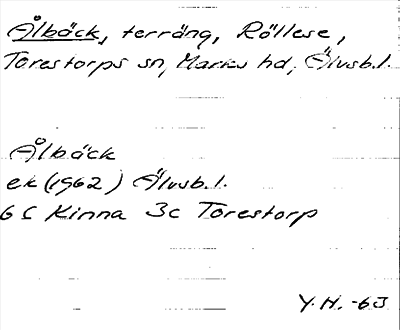 Ålbäck, terräng, Röllese,
Torestorps sn, Marks hd, Älvsb.l.
Ålbäck
ek (1962) Älvsb.l.
6C Kinna 3c Torestorp
Y.H. -63